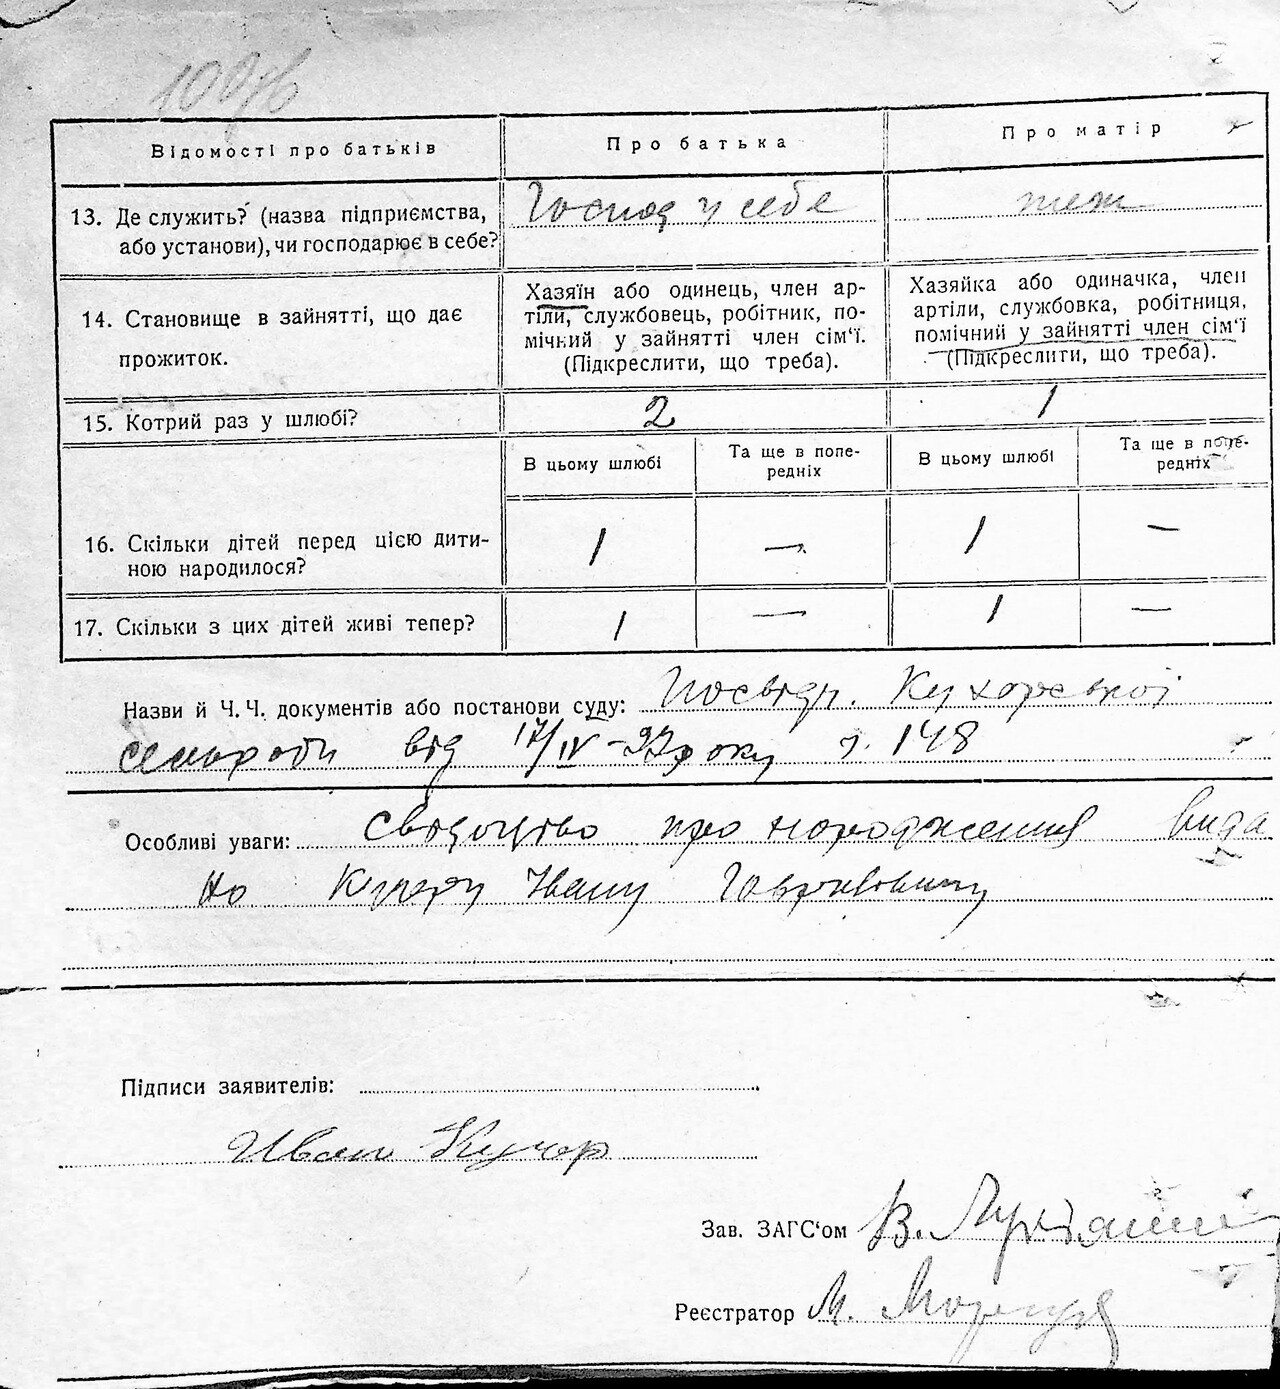 Відомості про батьків
Про батька
Про матір
13. Де служить? (назва підприємства,
або установи), чи господарює в себе?
Господ у себе
теж
14. Становище в зайнятті, що дає
прожиток.
Хазяїн або одинець, член ар-
тіли, службовець, робітник, по-
мічний у зайнятті член сім'ї.
(Підкреслити, що треба).
Хазяйка або одиначка, член
артіли, службовка, робітниця,
помічний у зайнятті член сім'ї
(Підкреслити, що треба).
15. Котрий раз у шлюбі?
2
1
В цьому шлюбі
Та ще в попе-
редніх
В цьому шлюбі
Та ще в попе-
редніх
16. Скільки дітей перед цією дити-
ною народилося?
1
—
1
—
17. Скільки з цих дітей живі тепер?
1
—
1
—
Назви й Ч. Ч. документів або постанови суду: Посвідч. Кухарської
сельради від 17/IV-27 року ч. 148
Особливі уваги: Свідоцтво про народження вида
но Кучеру Івану
Підписи заявителів:
Иван Кучер
Зав. ЗАГС'ом В.
Реєстратор М.